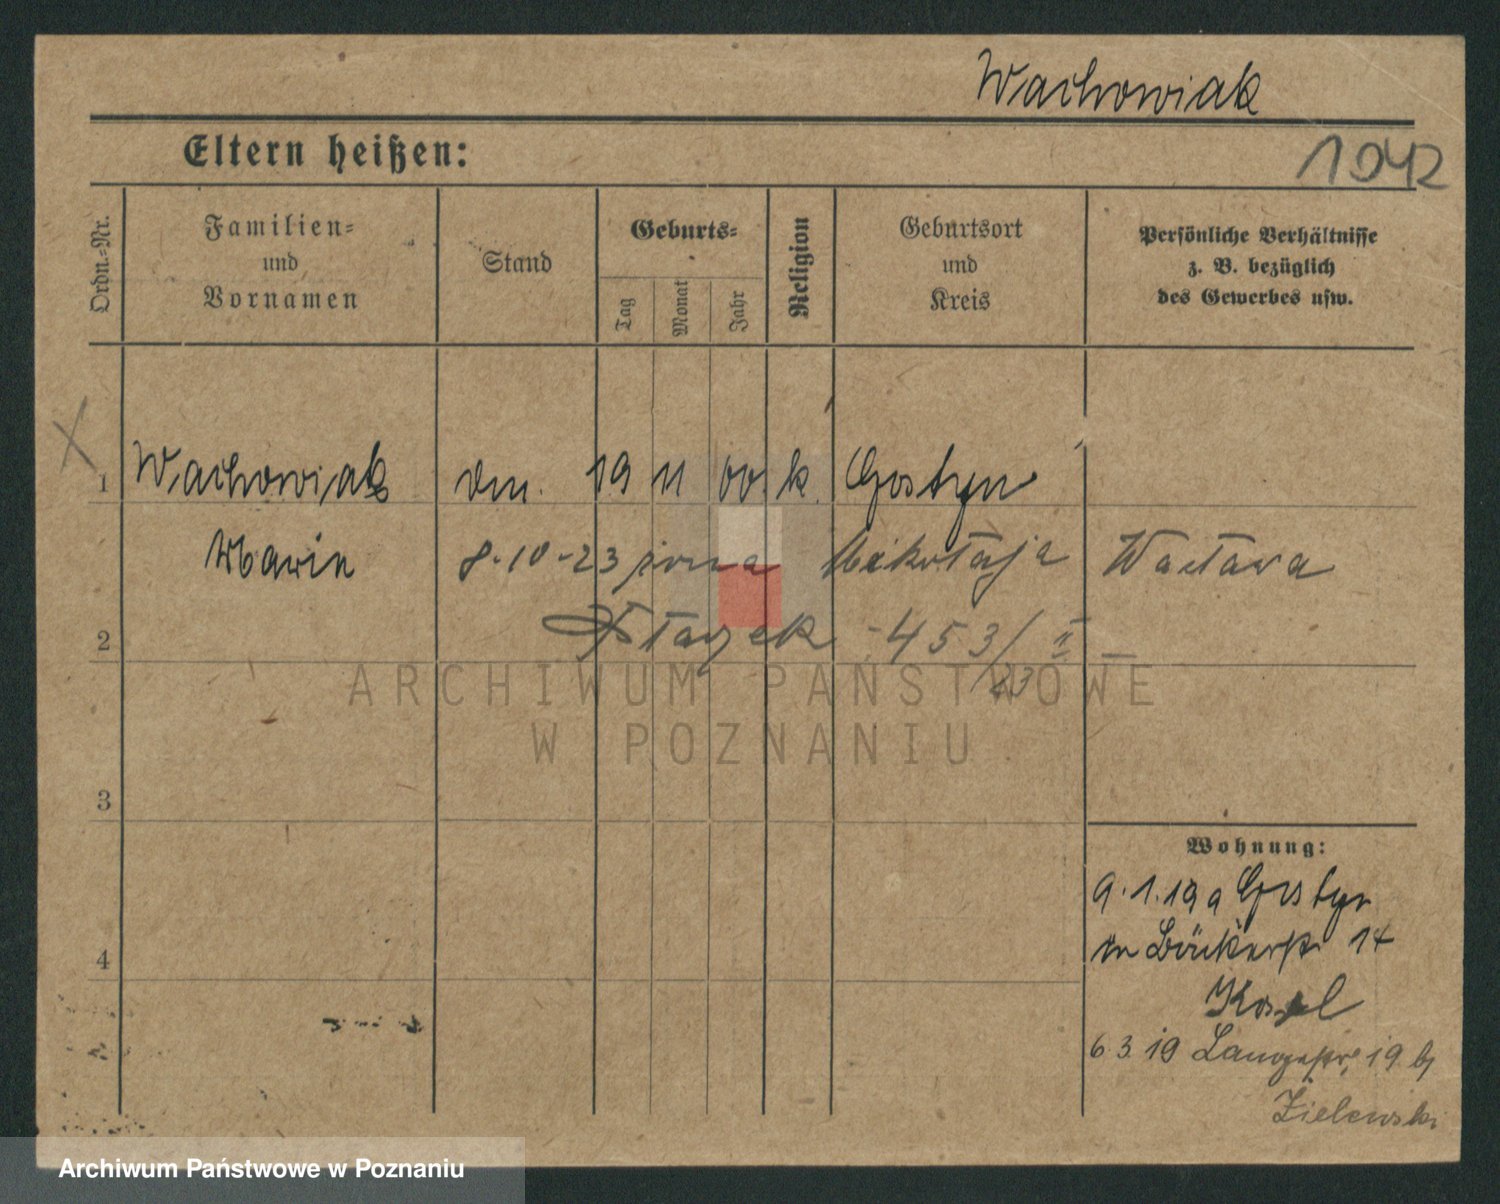 Wachowiak
Eltern heißen:
1042
Ordn.-Nr.
Familien-
und
Vornamen
Stand
Geburts-
Tag
Monat
Jahr
Religion
Geburtsort
und
Kreis
Persönliche Verhältnisse
z. B. bezüglich
des Gewerbes usw.
1
Wachowiak
19 11 00. k. Gostyn
Marie
8-10-23 żona Mikołaja Wacława
Ptaszek - 453/II
23
2
ARCHIWUM PAŃSTWOWE
W POZNANIU
3
Wohnung:
9.1.19 a Gostyn
14
4
6.3.19 Langestr. 19 b/
Zielewski
Archiwum Państwowe w Poznaniu